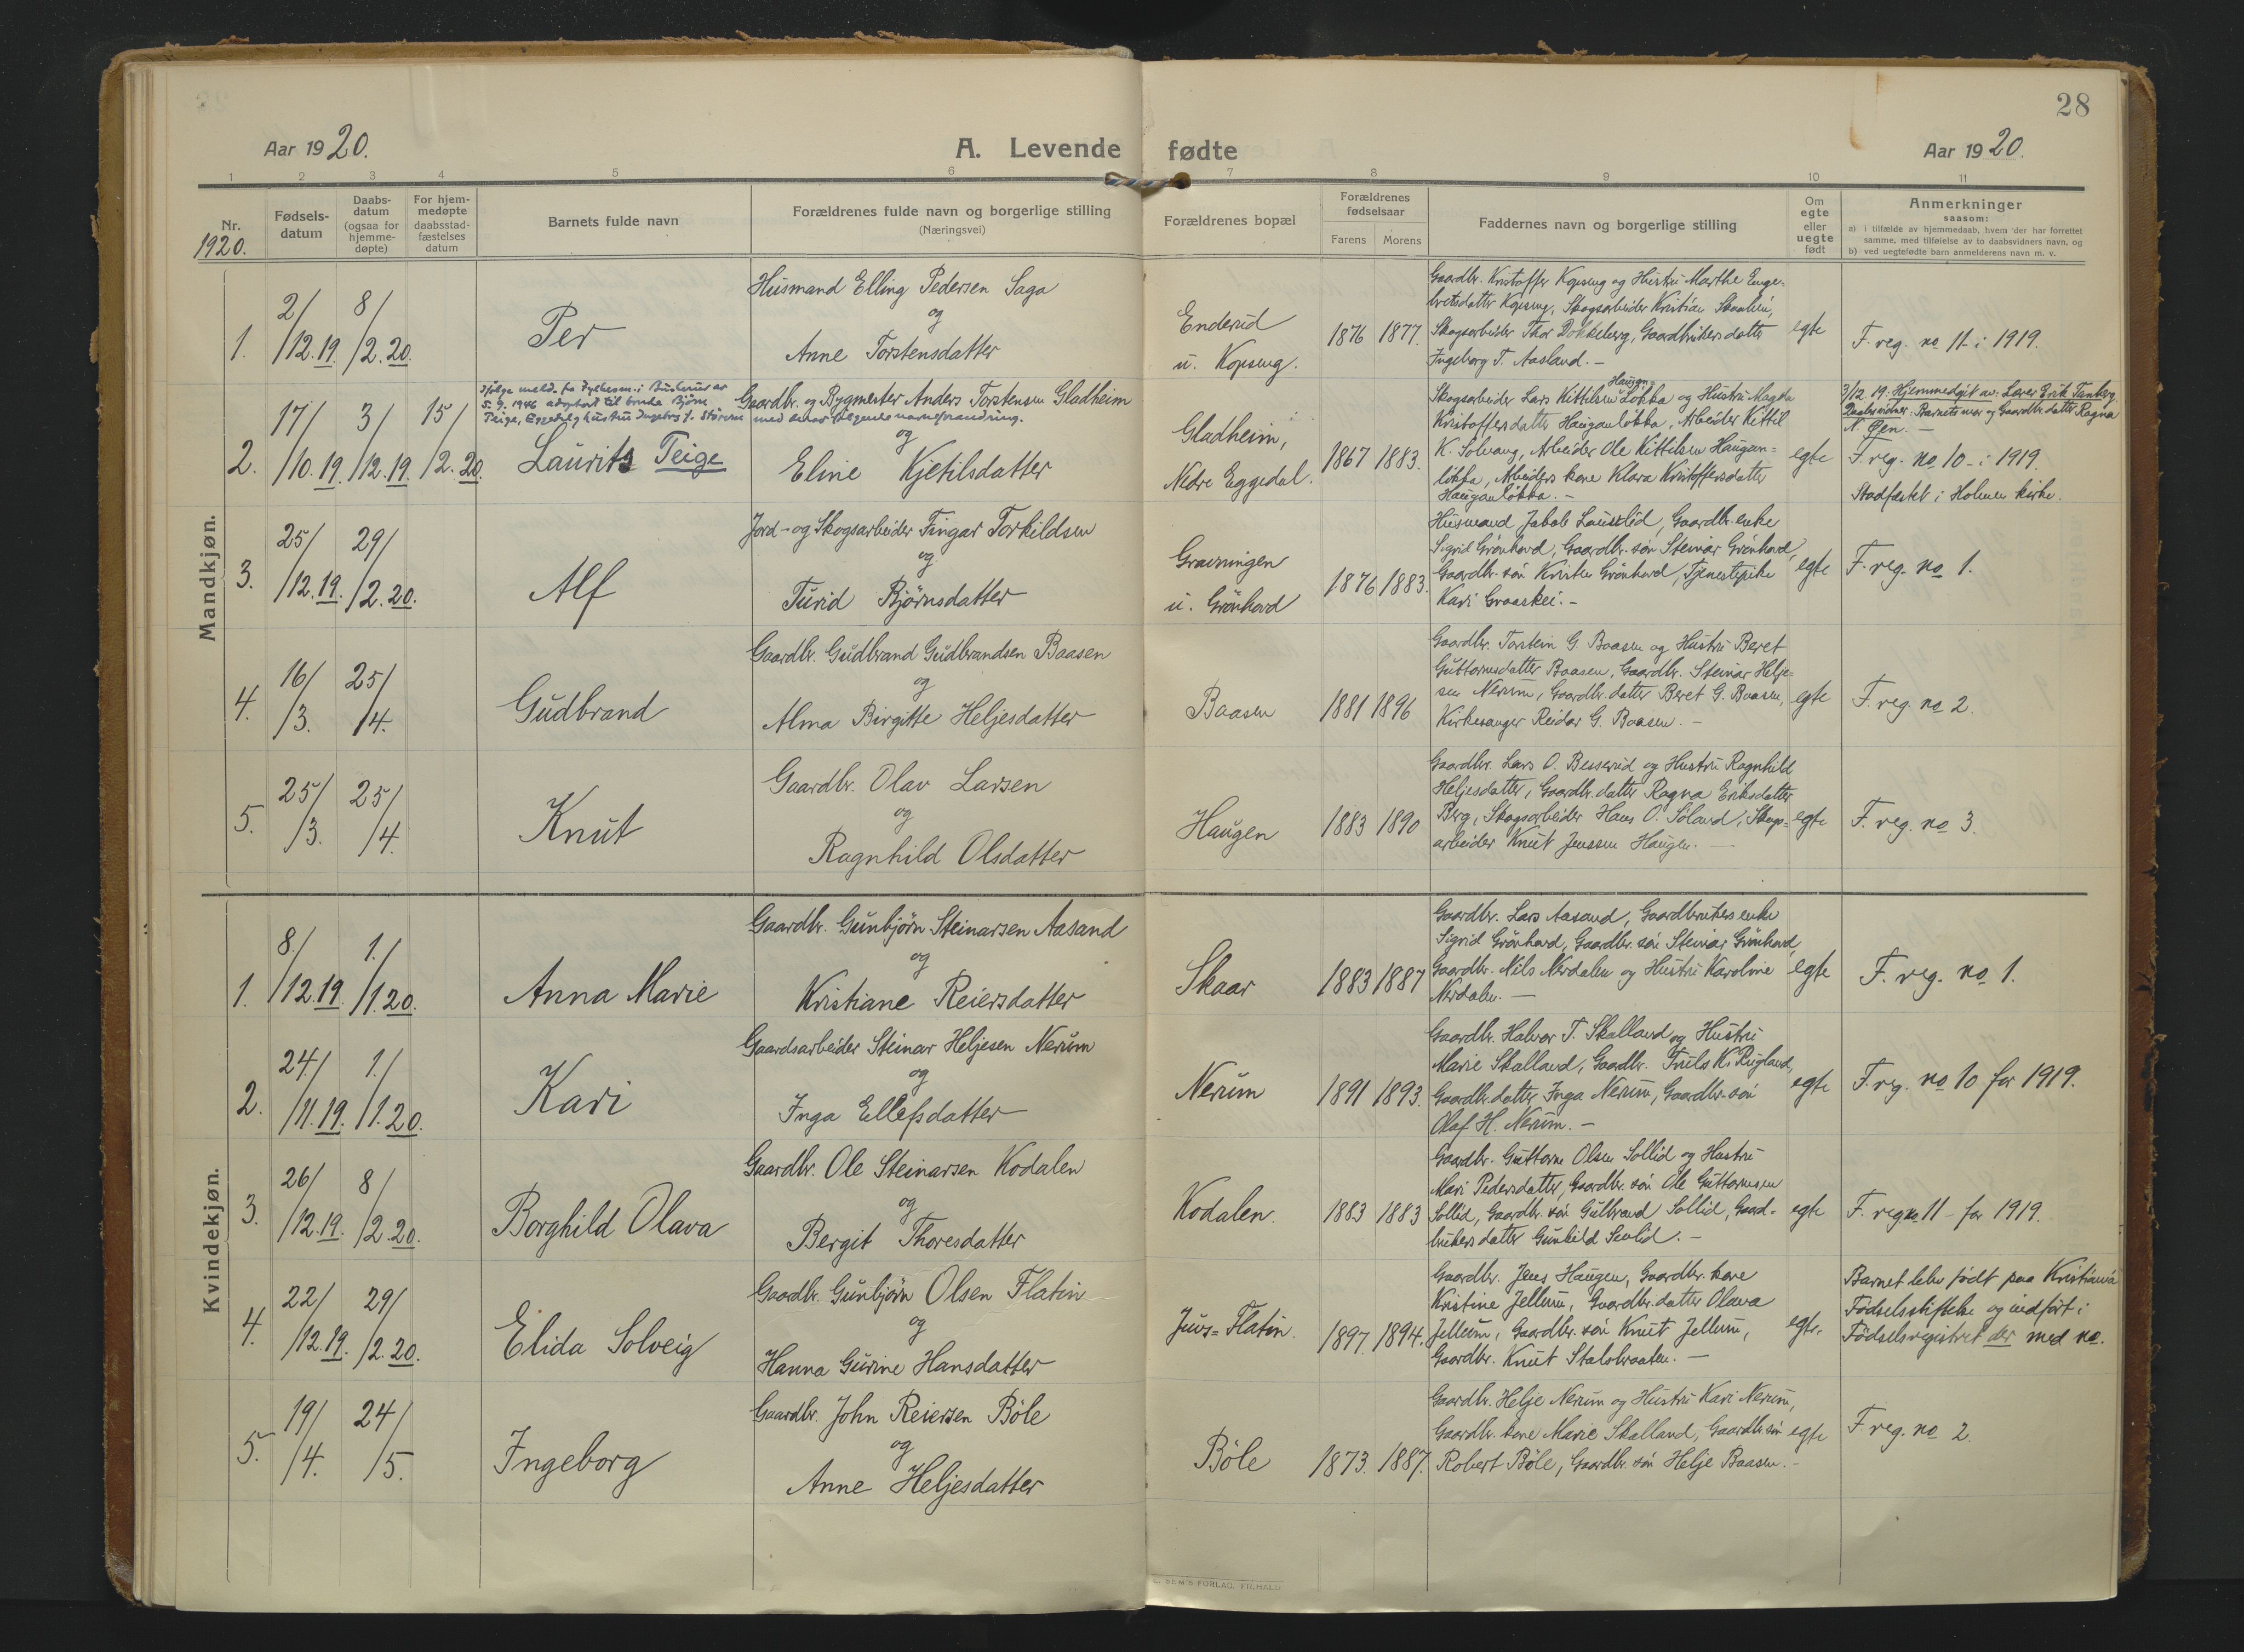 28
Aar 1920.
A. Levende fødte
Aar 1920.
1 2 3 4 5 6 7 8 9 10 11
Nr.
1920.
Fødsels-
datum
Daabs-
datum
(ogsaa for
hjemme-
døpte)
For hjem-
medøpte
daabsstad-
fæstelses
datum
Barnets fulde navn
Forældrenes fulde navn og borgerlige stilling
(Næringsvei)
Forældrenes bopæl
Forældrenes
fødselsaar
Farens Morens
Faddernes navn og borgerlige stilling
Om
egte
eller
uegte
født
Anmerkninger
saasom:
a) i tilfælde av hjemmedaab, hvem der har forrettet
samme, med tilføielse av to daabsvidners navn, og
b) ved uegtefødte barn anmelderens navn m. v.
Mandkjøn.
1.
2/12.19.
8/2.20.
Per
Husmand Elling Pedersen Saga
og
Anne Torstensdatter
Enderud
u. Kopseng.
1876 1877.
Gaardbr. Kristoffer Kopseng og Hustru Marthe Enge-
bretsdatter Kopseng, Skogsarbeider Kristian Skaalien,
Skogsarbeider Thor Dokkeberg, Gaardbrukersdatter
Ingeborg T. Aasland. –
egte
F. reg. no 11 i 1919.
2.
17/10.19.
3/12.19.
15/2.20.
Ifølge meld. fra Fylkesm. i Buskerud av
5.9.1946 adoptert til bonde Bjørn
Teige, Eggedal og hustru Ingeborg f. Støveren med derav følgende navneforandring.
Laurits Teige
Gaardbr. og Bygmester Anders Torstensen Gladheim
og
Eline Kjetilsdatter
Gladheim,
Nedre Eggedal.
1867 1883.
Skogsarbeider Lars Kittilsen Haugan Løkka og Hustru Magda
Kristoffersdatter Hauganløkka, Arbeider Kittil
K. Solvang, Arbeider Ole Kittilsen Haugan=
løkka, Arbeiders kone Klara Kristoffersdatter
Hauganløkka. –
egte
3/12.19. Hjemmedøpt av: Lærer Erik Tanberg.
Daabsvidner: Barnets mor og Gaardbr. datter Ragna
N. Øen. –
F. reg. no 10 i 1919.
Stadfæstet i Holmen kirke.
3.
25/12.19.
29/2.20.
Alf
Jord- og Skogsarbeider Fingar Torkildsen
og
Turid Bjørnsdatter
Gravningen
u. Grönhovd
1876 1883.
Husmand Jakob Lauvlid, Gaardbr. enke
Sigrid Grönhovd, Gaardbr. søn Steinar Grönhovd,
Gaardbr. søn Kristen Grönhovd, Tjenestepike
Kari Graaskei. –
egte
F. reg. no 1.
4.
16/3.
25/4.
Gudbrand
Gaardbr. Gudbrand Gudbrandsen Baasen
og
Alma Birgitte Heljesdatter
Baasen
1881 1896
Gaardbr. Torstein G. Baasen og Hustru Beret
Guttormsdatter Baasen, Gaardbr. Steinar Helje=
sen Nerum, Gaardbr. datter Beret G. Baasen,
Kirkesanger Reidar G. Baasen. –
egte
F. reg. no 2.
5.
25/3.
25/4.
Knut
Gaardbr. Olav Larsen
og
Ragnhild Olsdatter
Haugen
1883 1890
Gaardbr. Lars O. Besserud og Hustru Ragnhild
Heljesdatter, Gaardbr. datter Ragna Eriksdatter
Berg, Skogsarbeider Hans O. Söland, Skogs=
arbeider Knut Jenssen Haugen. –
egte
F. reg. no 3.
Kvindekjøn.
1.
8/12.19.
1./1.20.
Anna Marie
Gaardbr. Gunbjörn Steinarsen Aasand
og
Kristiane Reiersdatter
Skaar
1883 1887
Gaardbr. Lars Aasand, Gaardbrukers enke
Sigrid Grönhovd, Gaardbr. søn Steinar Grönhovd,
Gaardbr. Nils Nerdalen og Hustru Karoline
Nerdalen. –
egte
F. reg. no 1.
2.
24/11.19.
1./1.20.
Kari
Gaardsarbeider Steinar Heljesen Nerum
og
Inga Ellefsdatter
Nerum
1891 1893.
Gaardbr. Halvor T. Skalland og Hustru
Marie Skalland, Gaardbr. Truls K. Rugland,
Gaardbr. datter Inga Nerum, Gaardbr. søn
Olaf H. Nerum. –
egte
F. reg. no 10 for 1919.
3.
26/12.19.
8/2.20.
Borghild Olava
Gaardbr. Ole Steinarsen Kodalen
og
Bergit Thoresdatter
Kodalen.
1883 1883
Gaardbr. Guttorm Olsen Sollid og Hustru
Mari Pedersdatter, Gaardbr. søn Ole Guttormsen
Sollid, Gaardbr. søn Gulbrand Sollid, Gaard-
brukersdatter Gunhild Sevlid. –
egte
F. reg no 11 – for 1919.
4.
22/12.19.
29/2.20.
Elida Solveig
Gaardbr. Gunbjörn Olsen Flatin
og
Hanna Gurine Hansdatter
Juvs=Flatin.
1897. 1894.
Gaardbr. Jens Haugen, Gaardbr. kone
Kristine Jellum, Gaardbr. datter Olava
Jellum, Gaardbr. søn Knut Jellum,
Gaardbr. Knut Stalsbraaten. –
egte.
Barnet blev født paa Kristiania
Fødselsstiftelse og indført i
Fødselsregistret der med no.
5.
19/4.
24/5.
Ingeborg
Gaardbr. John Reiersen Böle
og
Anne Heljesdatter
Böle
1873. 1887.
Gaardbr. Helje Nerum og Hustru Kari Nerum,
Gaardbr. kone Marie Skalland, Gaardbr. søn
Robert Böle, Gaardbr. søn Helje Baasen. –
egte
F. reg. no 2.
SEM'S FORLAG. FR.HALD